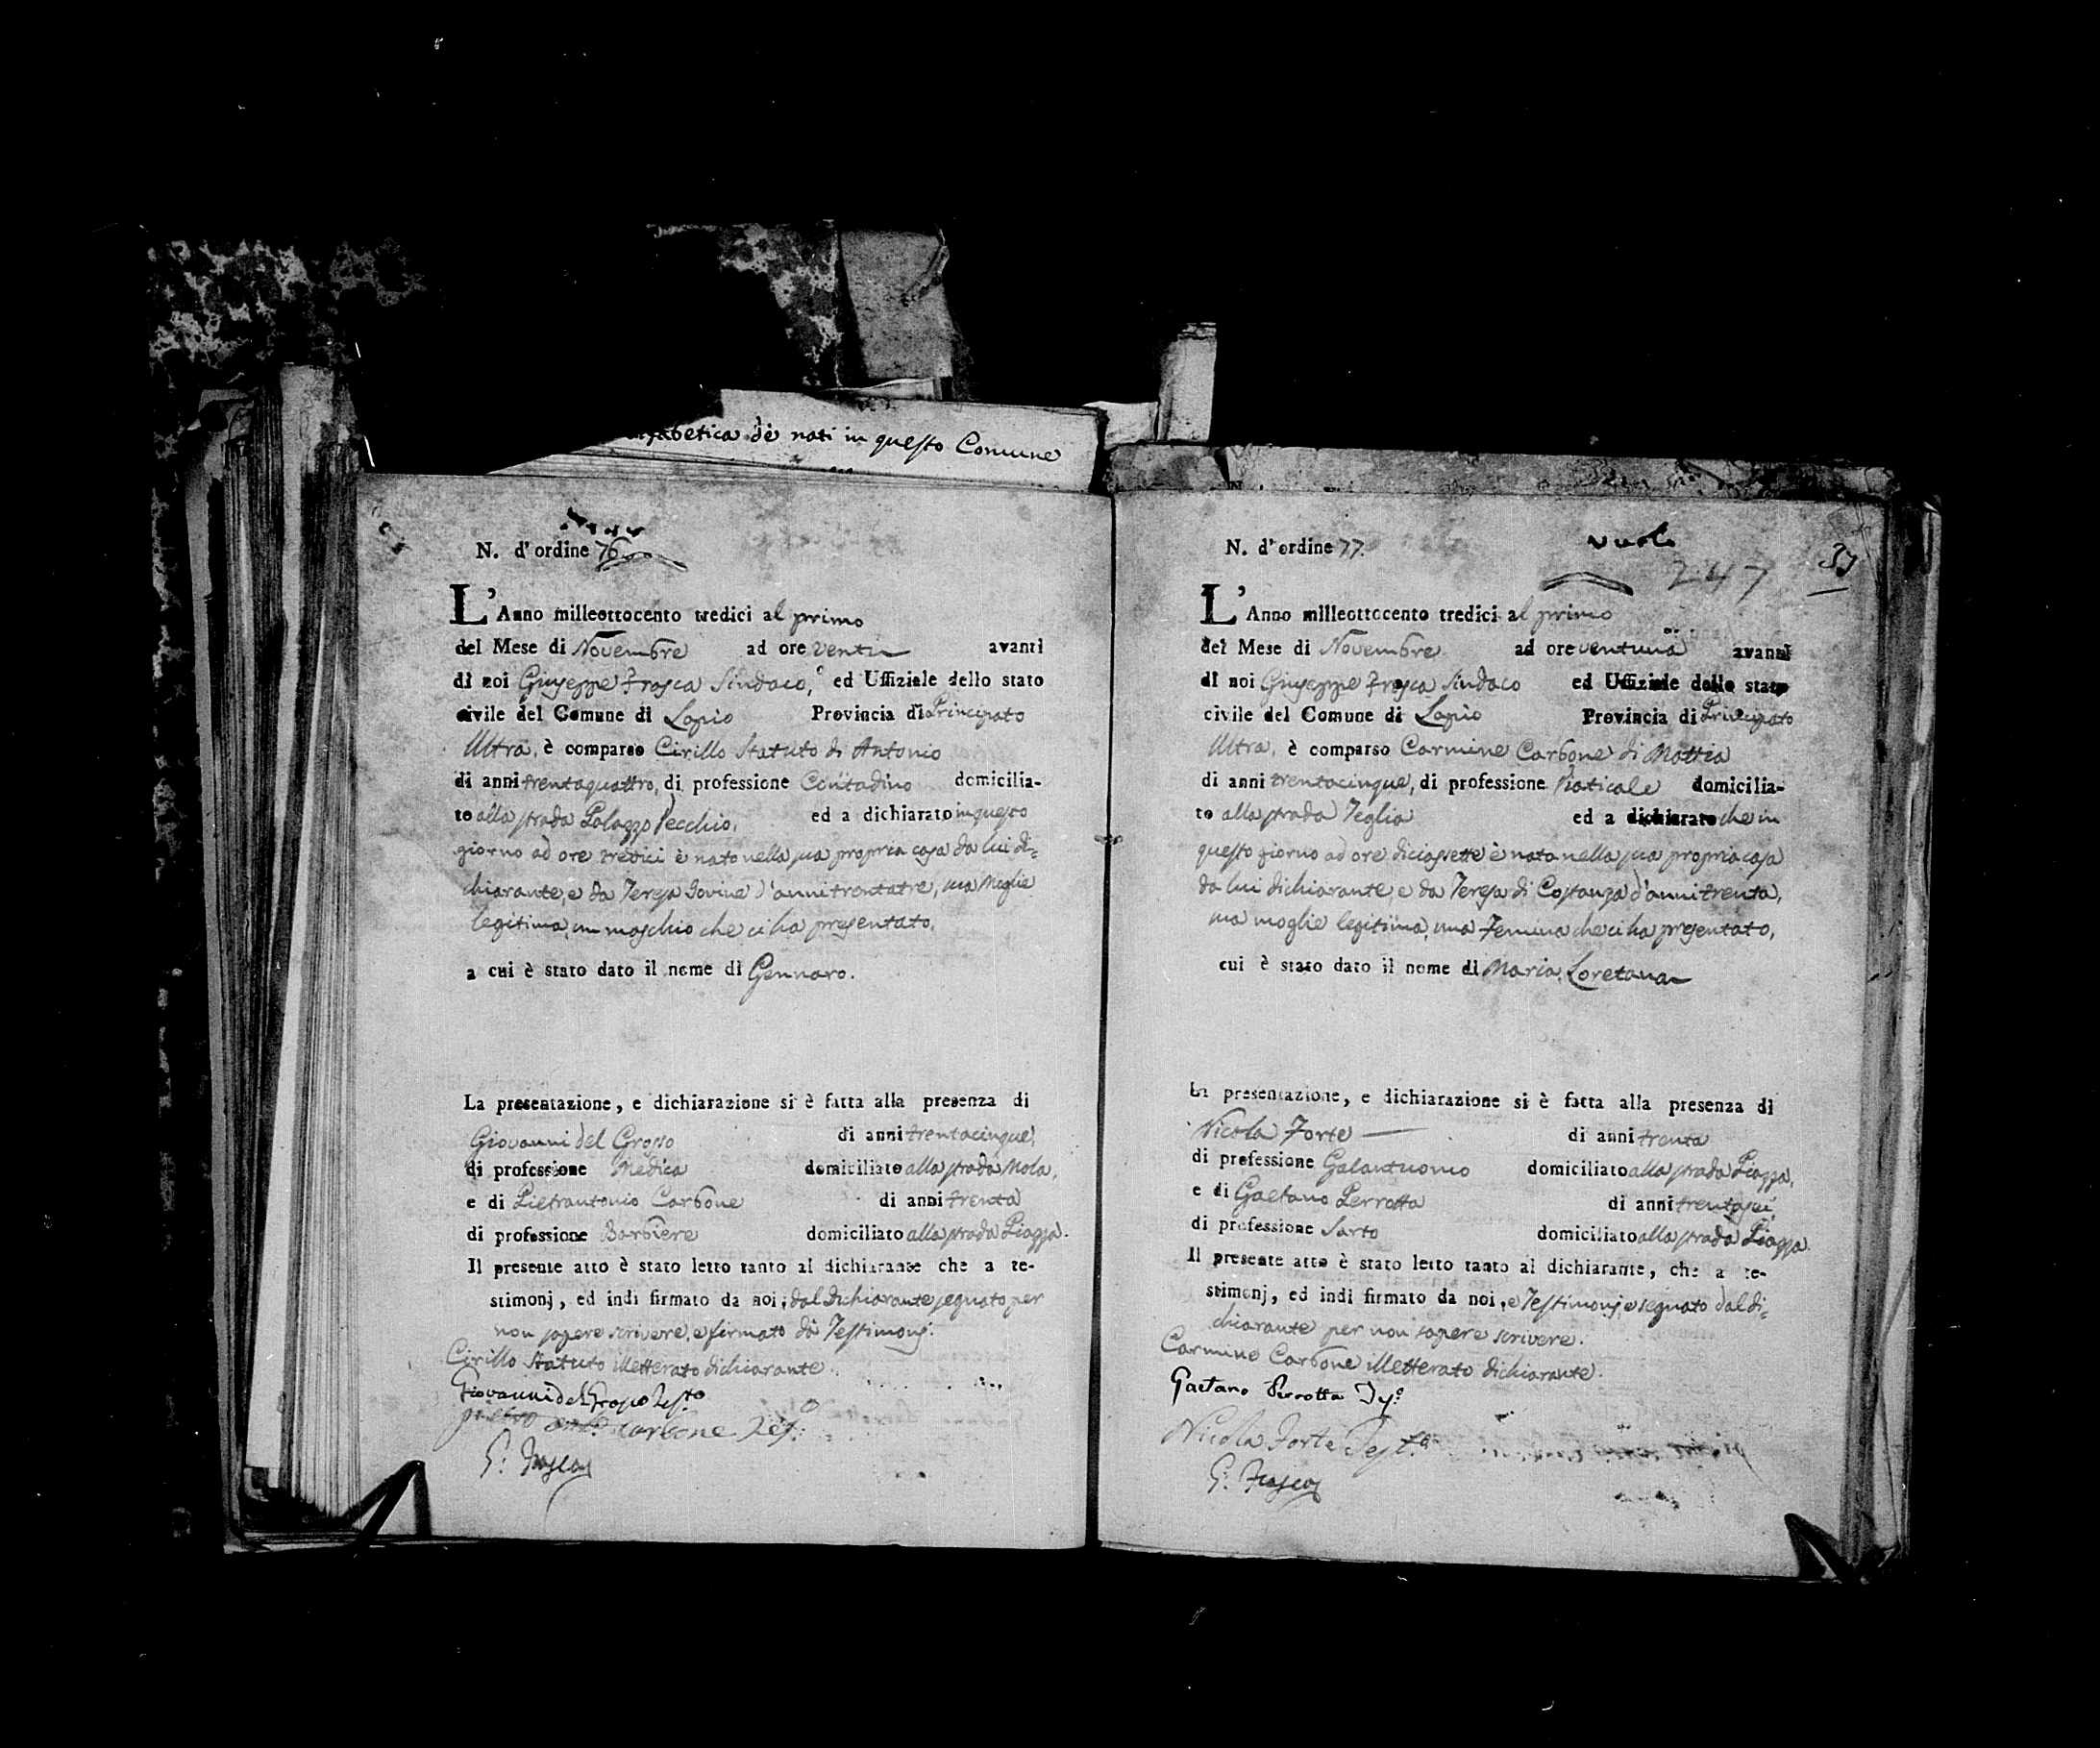 alfabetica dè nati in questo Comune
N. d'ordine 76
L'Anno milleottocento tredici al primo
del Mese di Novembre ad ore venti avanti
di noi Giuseppe Frasca Sindaco, ed Uffiziale dello stato
civile del Comune di Lapio Provincia di Principato
Ultra, è comparso Cirillo Statuto di Antonio
di anni trentaquattro, di professione Contadino domicilia-
to alla strada Palazzo Vecchio, ed a dichiarato in questo
giorno ad ore tredici è nato nella sua propria casa da lui di=
chiarante, e da Teresa Iovine d'anni trentatre, sua Moglie
legitima, un maschio che ci ha presentato,
a cui è stato dato il nome di Gennaro.
La presentazione, e dichiarazione si è fatta alla presenza di
Giovanni del Grosso di anni trentacinque,
di professione Medico domiciliato alla strada Mola,
e di Pietrantonio Carbone di anni trenta
di professione Barbiere domiciliato alla strada Piazza.
Il presente atto è stato letto tanto al dichiarante che a te-
stimonj, ed indi firmato da noi, dal dichiarante segnato per
non sapere scrivere, e firmato dà Testimonj.
Cirillo Statuto illetterato dichiarante
Giovanni del Grosso Testo
Carbone Tes:
G: Frasca
N. d'ordine 77.
247
37
L'Anno milleottocento tredici al primo
del Mese di Novembre ad ore ventuna avanti
di noi Giuseppe Frasca Sindaco ed Uffiziale dello stato
civile del Comune di Lapio Provincia di Principato
Ultra, è comparso Carmine Carbone di Mattia
di anni trentacinque, di professione Viaticale domicilia-
to alla strada Teglia ed a dichiarato che in
questo giorno ad ore diciassette è nata nella sua propria casa
da lui dichiarante, e da Teresa di Costanza d'anni trenta,
sua moglie legitima, una Femina che ci ha presentato,
cui è stato dato il nome di Maria Loretana
La presentazione, e dichiarazione si è fatta alla presenza di
Nicola Forte di anni trenta
di professione Galantuomo domiciliato alla strada Piazza,
e di Gaetano Perrotta di anni trentasei,
di professione Sarto domiciliato alla strada Piazza.
Il presente atto è stato letto tanto al dichiarante, che a te-
stimonj, ed indi firmato da noi, e Testimonj, e segnato dal di=
chiarante per non sapere scrivere.
Carmine Carbone illetterato dichiarante.
Gaetano Perrotta Tes.o
Nicola Forte Test.o
G: Frasca